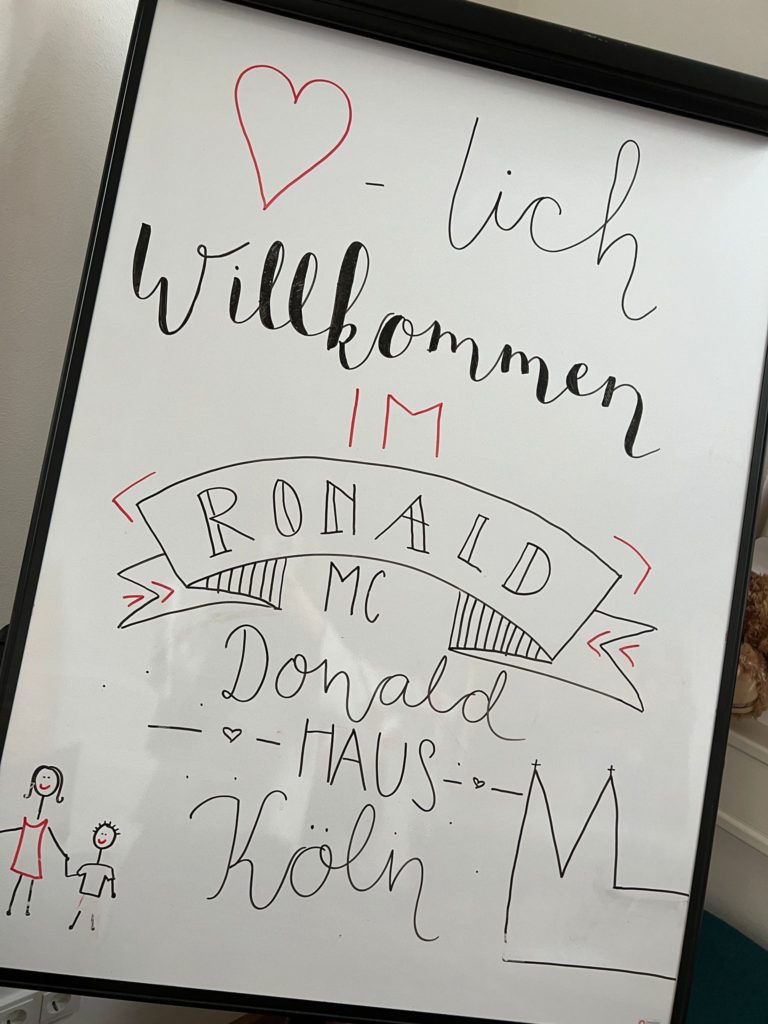 - lich
Willkommen
IM
RONALD
MC
Donald
HAUS
Köln